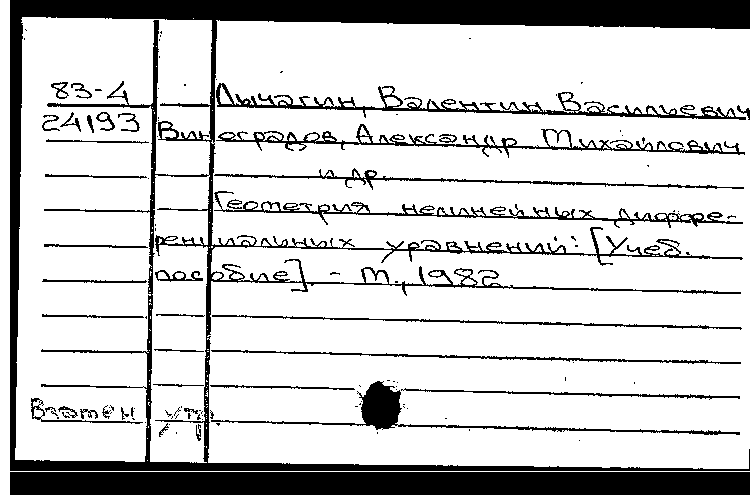 83-4 Лычагин, Валентин Васильевич
24193 Виноградов, Александр Михайлович
и др.
Геометрия нелинейных диффере-
ренциальных уравнений: [Учеб.
пособие]. - М., 1982.
Взамен утр.